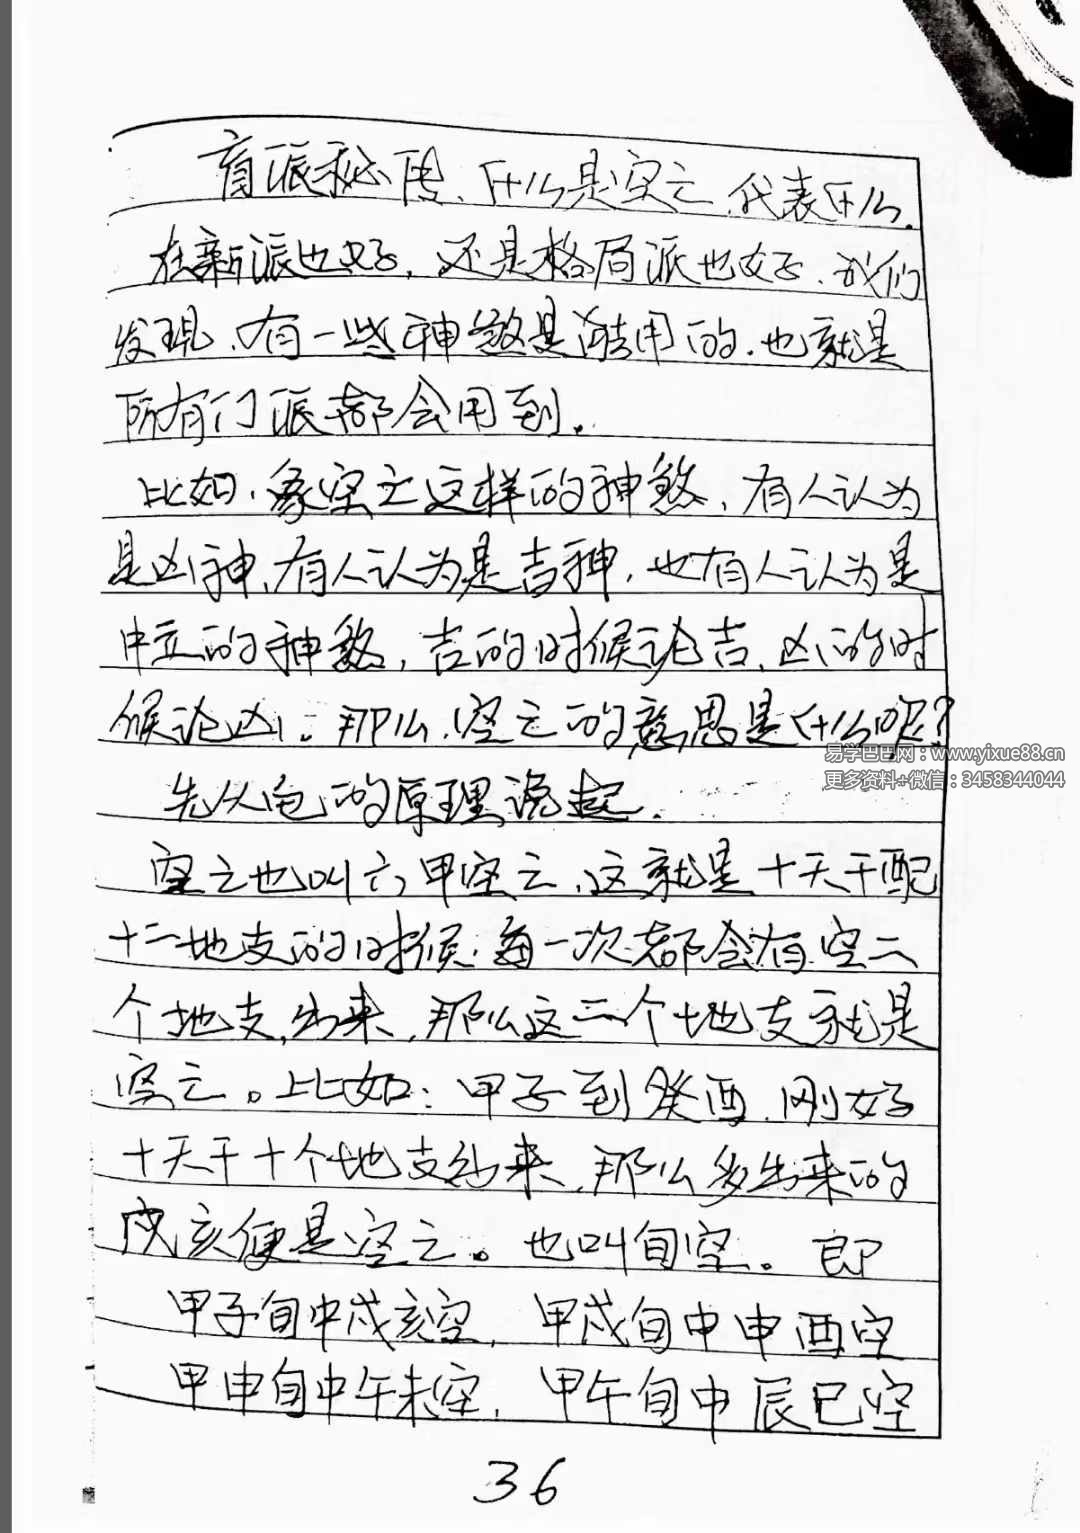 盲派秘传、什么是空亡、代表什么.
在新派也好，还是格局派也好、我们
发现、有一些神煞是通用的.也就是
所有门派都会用到.
比如、象空亡这样的神煞，有人认为
是凶神、有人认为是吉神，也有人认为是
中立的神煞，吉的时候论吉、凶的时
候论凶；那么、空亡的意思是什么呢?
易学巴巴网：www.yixue88.cn
更多资料+微信：3458344044
先从它的原理说起.
空亡也叫六甲空亡、这就是十天干配
十二地支的时候.每一次都会有空二
个地支出来，那么这二个地支就是
空亡。比如：甲子到癸酉、刚好
十天干十个地支出来，那么多出来的
戌亥便是空亡。也叫旬空。即
甲子旬中戌亥空，甲戌旬中申酉空
甲申旬中午未空，甲午旬中辰巳空
36